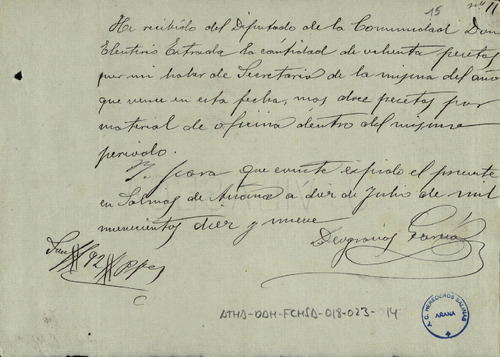 15 nº 11
He recibido del Diputado de la Comunidad Don
Eleuterio Estrada la cantidad de ochenta pesetas
por mi haber de Secretario de la misma del año
que vence en esta fecha, mas diez pesetas por
material de oficina dentro del mismo
periodo.
Y para que conste expido el presente
en Salinas de Añana a diez de Julio de mil
novecientos diez y nueve
Deogracias García
Son # 92 # ptas
ATHA-DAH-FCMSA-018-023-14
A.C. HEREDEROS SALINAS
AÑANA